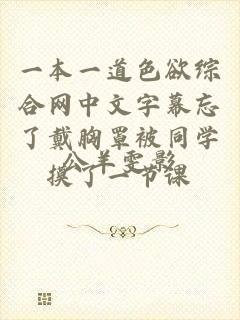 一本一道色欲综
合网中文字幕忘
了戴胸罩被同学
摸了一节课
公羊雯影